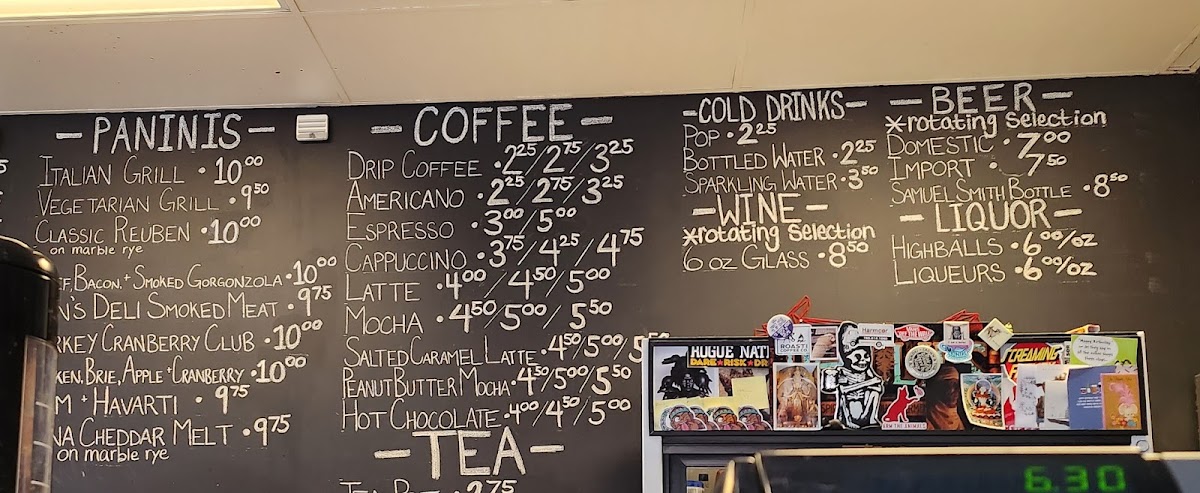 - PANINIS -
ITALIAN GRILL • 10⁰⁰
VEGETARIAN GRILL • 9⁵⁰
CLASSIC REUBEN • 10⁰⁰
on marble rye
BACON, + SMOKED GORGONZOLA • 10⁰⁰
DELI SMOKED MEAT • 9⁷⁵
CRANBERRY CLUB • 10⁰⁰
BRIE, APPLE + CRANBERRY • 10⁰⁰
+ HAVARTI • 9⁷⁵
CHEDDAR MELT • 9⁷⁵
on marble rye
- COFFEE -
DRIP COFFEE • 2²⁵/2⁷⁵/3²⁵
AMERICANO • 2²⁵/2⁷⁵/3²⁵
ESPRESSO • 3⁰⁰/5⁰⁰
CAPPUCCINO • 3⁷⁵/4²⁵/4⁷⁵
LATTE • 4⁰⁰/4⁵⁰/5⁰⁰
MOCHA • 4⁵⁰/5⁰⁰/5⁵⁰
SALTED CARAMEL LATTE • 4⁵⁰/5⁰⁰/5
PEANUT BUTTER MOCHA • 4⁵⁰/5⁰⁰/5⁵⁰
HOT CHOCOLATE • 4⁰⁰/4⁵⁰/5⁰⁰
- TEA -
2⁷⁵
- COLD DRINKS -
POP • 2²⁵
BOTTLED WATER • 2²⁵
SPARKLING WATER • 3⁵⁰
- WINE -
*rotating selection
6 OZ GLASS • 8⁵⁰
- BEER -
*rotating selection
DOMESTIC • 7⁰⁰
IMPORT • 7⁵⁰
SAMUEL SMITH BOTTLE • 8⁵⁰
- LIQUOR -
HIGHBALLS • 6⁰⁰/OZ
LIQUEURS • 6⁰⁰/OZ
ROASTI
COFFEE CO
HUGUE NAT
DARE ★ RISK ★ DR
SCREAMING
ARM THE ANIMALS
6.30